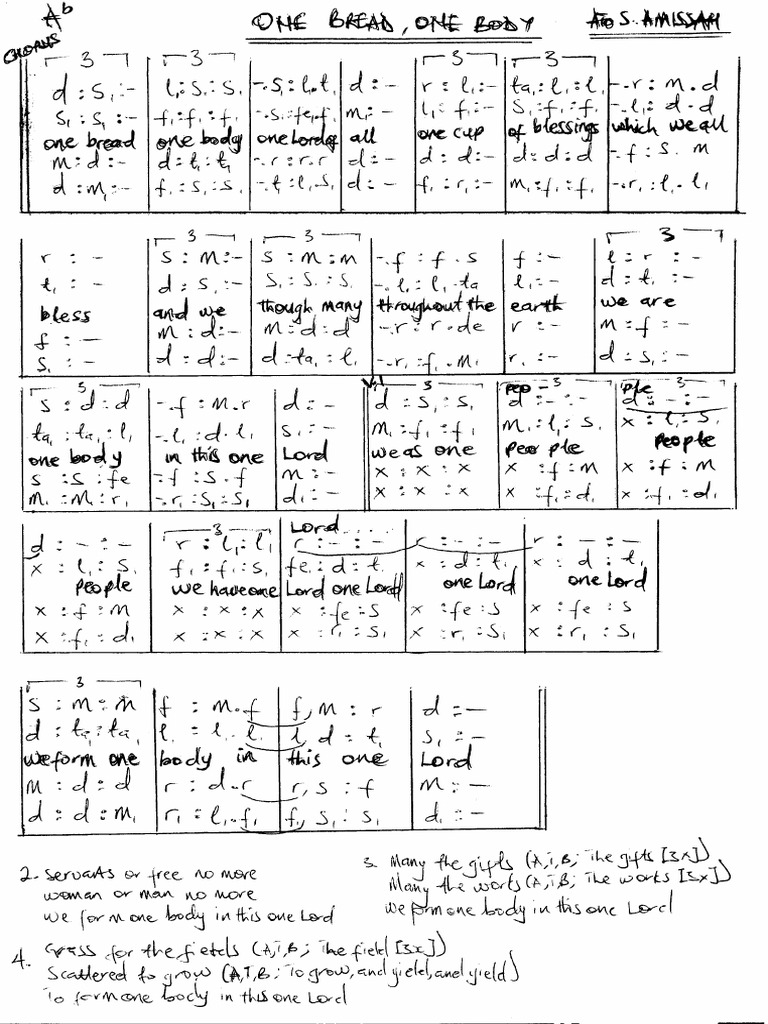 A♭ ONE BREAD, ONE BODY A TO S. AMISSAH
CHORUS
3 3 3 3
d : s₁ :- | l₁ : s₁ : s₁ | -. s₁ : l₁. t₁ | d :- | r : l₁ :- | ta₁ : l₁ : l₁ | -. r : m . d
s₁ : s₁ :- | f₁ : f₁ : f₁ | -. s₁ : fe₁. f₁ | m₁ :- | l₁ : f₁ :- | s₁ : f₁ : f₁ | -. l₁ : d . d
one bread | one body | one Lord of | all | one cup | of blessings | which we all
m : d :- | d : t₁ : t₁ | -. r : r . r | d :- | d : d :- | d : d : d | - f : s . m
d : m₁ :- | f₁ : s₁ : s₁ | -. t₁ : l₁. s₁ | d :- | f₁ : r₁ :- | m₁ : f₁ : f₁ | -. r₁ : l₁ . l₁
3 3 3
r :- | s : m :- | s : m : m | -. f : f . s | f :- | l : r :-
t₁ :- | d : s₁ :- | s₁ : s₁ : s₁ | -. l₁ : l₁. ta | l₁ :- | d : t₁ :-
bless | and we | though many | throughout the | earth | we are
f :- | m : d :- | m : d : d | - r : r . de | r :- | m : f :-
s₁ :- | d : d :- | d : ta₁ : l₁ | -. r₁ : f₁ . m₁ | r₁ :- | d : s₁ :-
3 V.1 3 Peo - 3 ple 3
s : d : d | -. f : m . r | d :- | d : s₁ : s₁ | d :- :- | d :- :-
ta₁ : ta₁ : l₁ | -. l₁ : d . l₁ | s₁ :- | m₁ : f₁ : f₁ | m₁ : l₁ : s₁ | x : l₁ : s₁
one body | in this one | Lord | we as one | Peo ple | People
s : s : fe | - f : s . f | m :- | x : x : x | x : f : m | x : f : m
m₁ : m₁ : r₁ | -. r₁ : s₁ : s₁ | d₁ :- | x : x : x | x : f₁ : d₁ | x : f₁ : d₁
3 Lord
d :- :- | r : l₁ : l₁ | r :- :- | r :- :- | r :- :-
x : l₁ : s₁ | f₁ : f₁ : s₁ | fe₁ : d : t₁ | x : d : t₁ | x : d : t₁
People | we have one | Lord one Lord | one Lord | one Lord
x : f : m | x : x : x | x : fe : s | x : fe : s | x : fe : s
x : f₁ : d₁ | x : x : x | x : r₁ : s₁ | x : r₁ : s₁ | x : r₁ : s₁
3
s : m : m | f : m . f | f, m : r | d :-
d : ta₁ : ta₁ | l₁ : l₁ . l₁ | l₁ d : t₁ | s₁ :-
we form one | body in | this one | Lord
m : d : d | r : d . r | r, s : f | m :-
d : d : m₁ | r₁ : l₁ . f₁ | f₁, s₁ : s₁ | d₁ :-
2. Servants or free no more
woman or man no more
We form one body in this one Lord
3. Many the gifts (A,T,B; The gifts [3x])
Many the works (A,T,B; The works [3x])
We form one body in this one Lord
4. Grass for the fields (A,T,B; The field [3x])
Scattered to grow (A,T,B; To grow, and yield, and yield)
To form one body in this one Lord